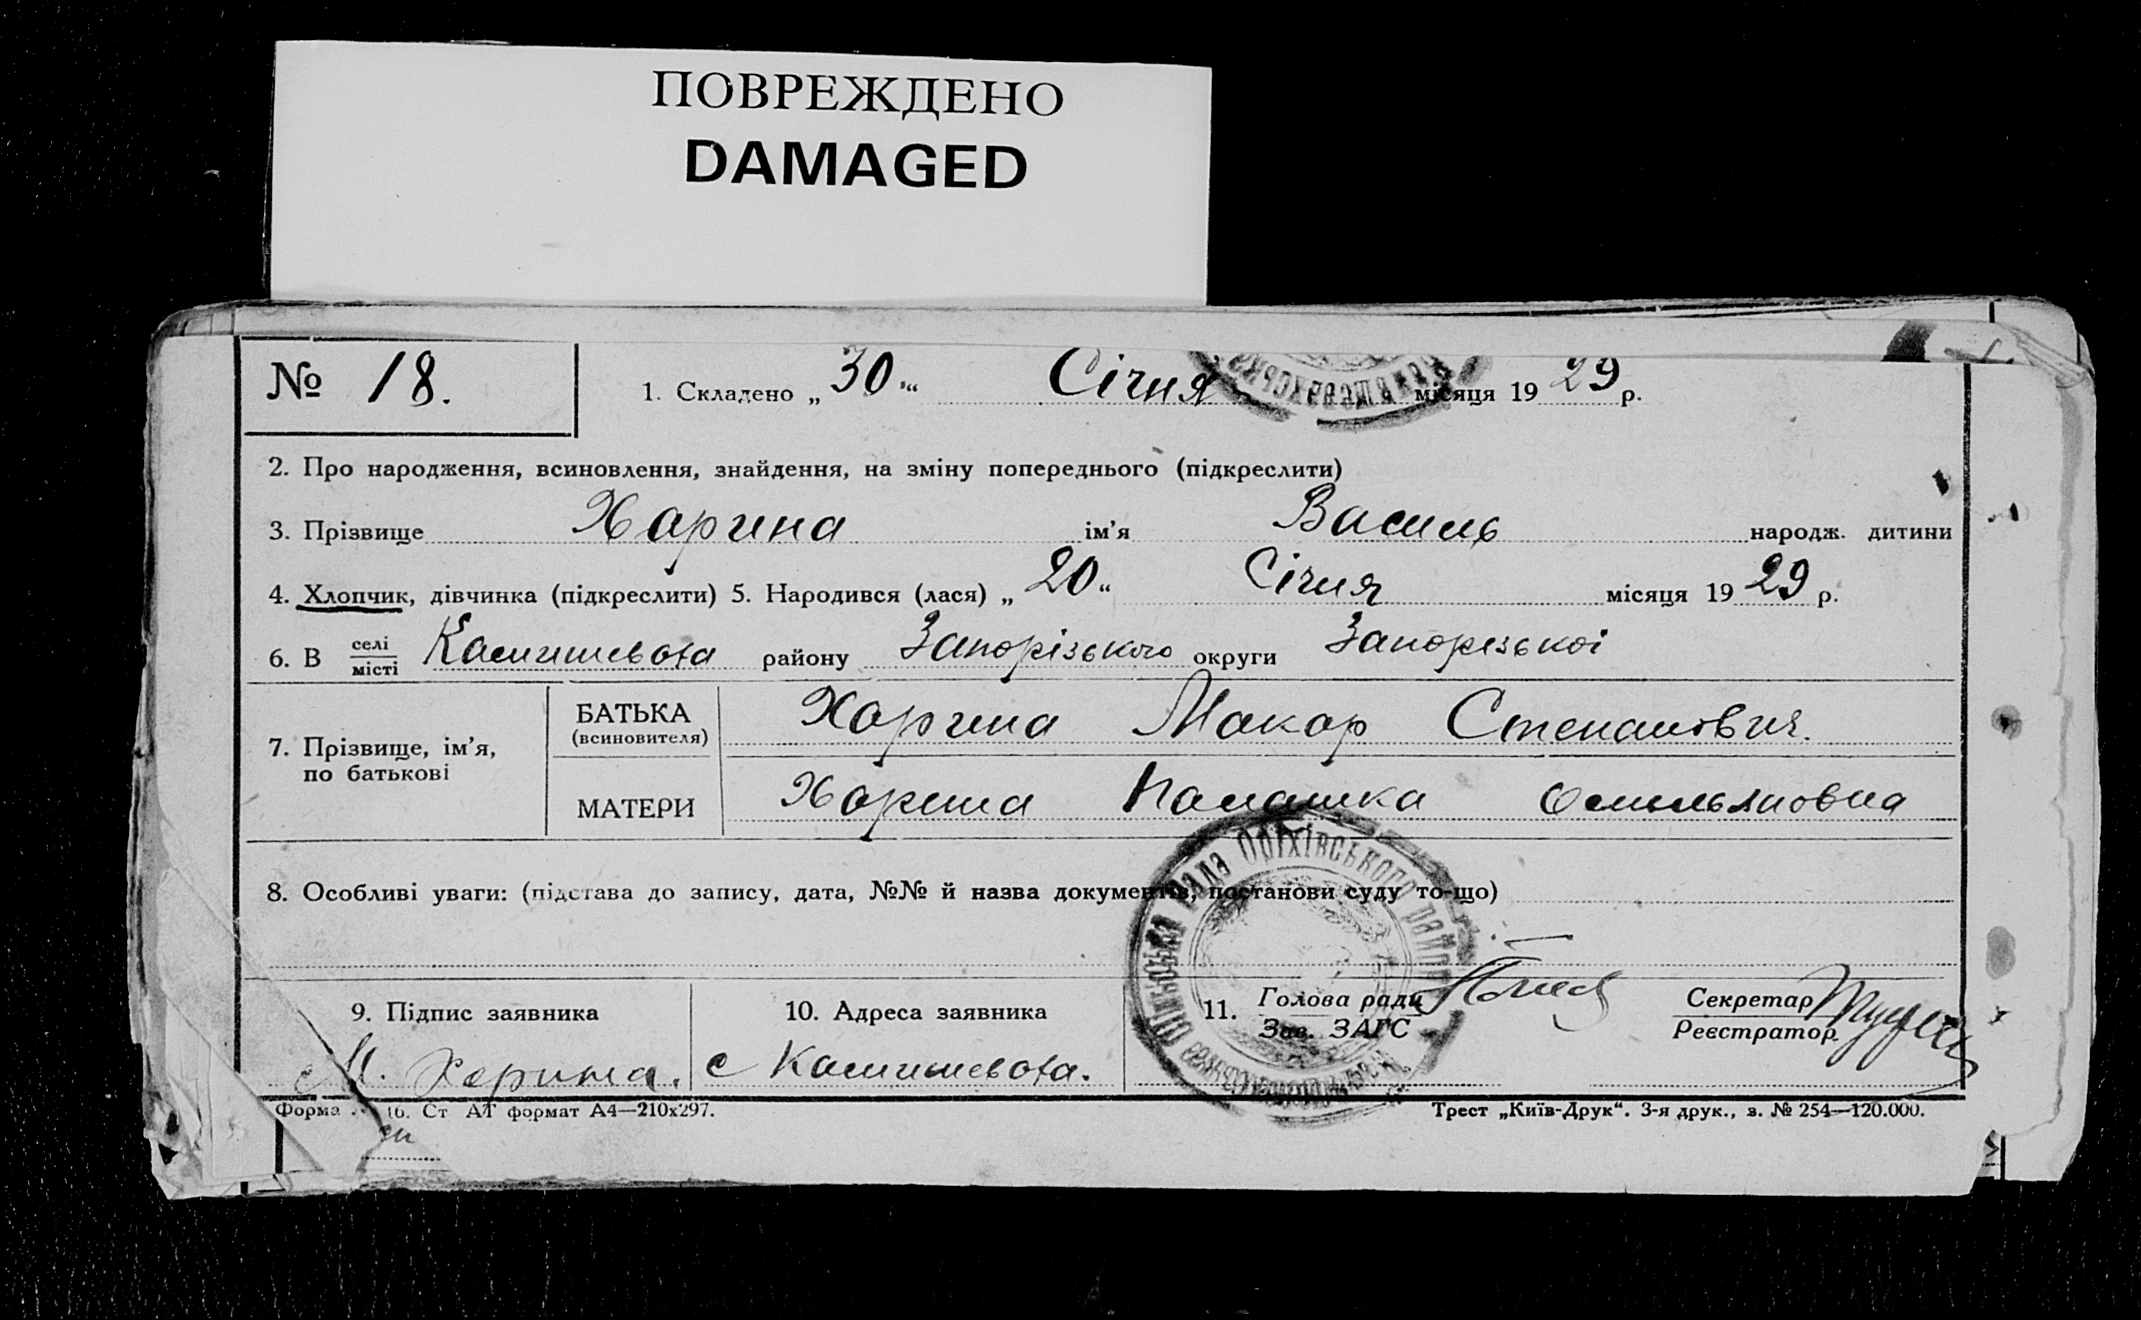 ПОВРЕЖДЕНО
DAMAGED
№ 18.
1. Складено „30“ Січня місяця 1929 р.
2. Про народження, всиновлення, знайдення, на зміну попереднього (підкреслити)
3. Прізвище Харина ім’я Василь народж. дитини
4. Хлопчик, дівчинка (підкреслити) 5. Народився (лася) „20“ Січня місяця 1929 р.
6. В селі/місті Камишеваха району Запорізького округи Запорізької
7. Прізвище, ім’я, по батькові
БАТЬКА (всиновителя) Харина Макар Степанович.
МАТЕРИ Харина Палашка Омельяновна
8. Особливі уваги: (підстава до запису, дата, №№ й назва документів, постанови суду то-що)
рада Оріхівського
9. Підпис заявника
М. Харина.
10. Адреса заявника
с Камишеваха.
11. Голова ради
Зав. ЗАГС
Секретар
Реєстратор
Форма 16. Ст АТ формат А4—210х297.
Трест „Київ-Друк“. 3-я друк., з. № 254—120.000.